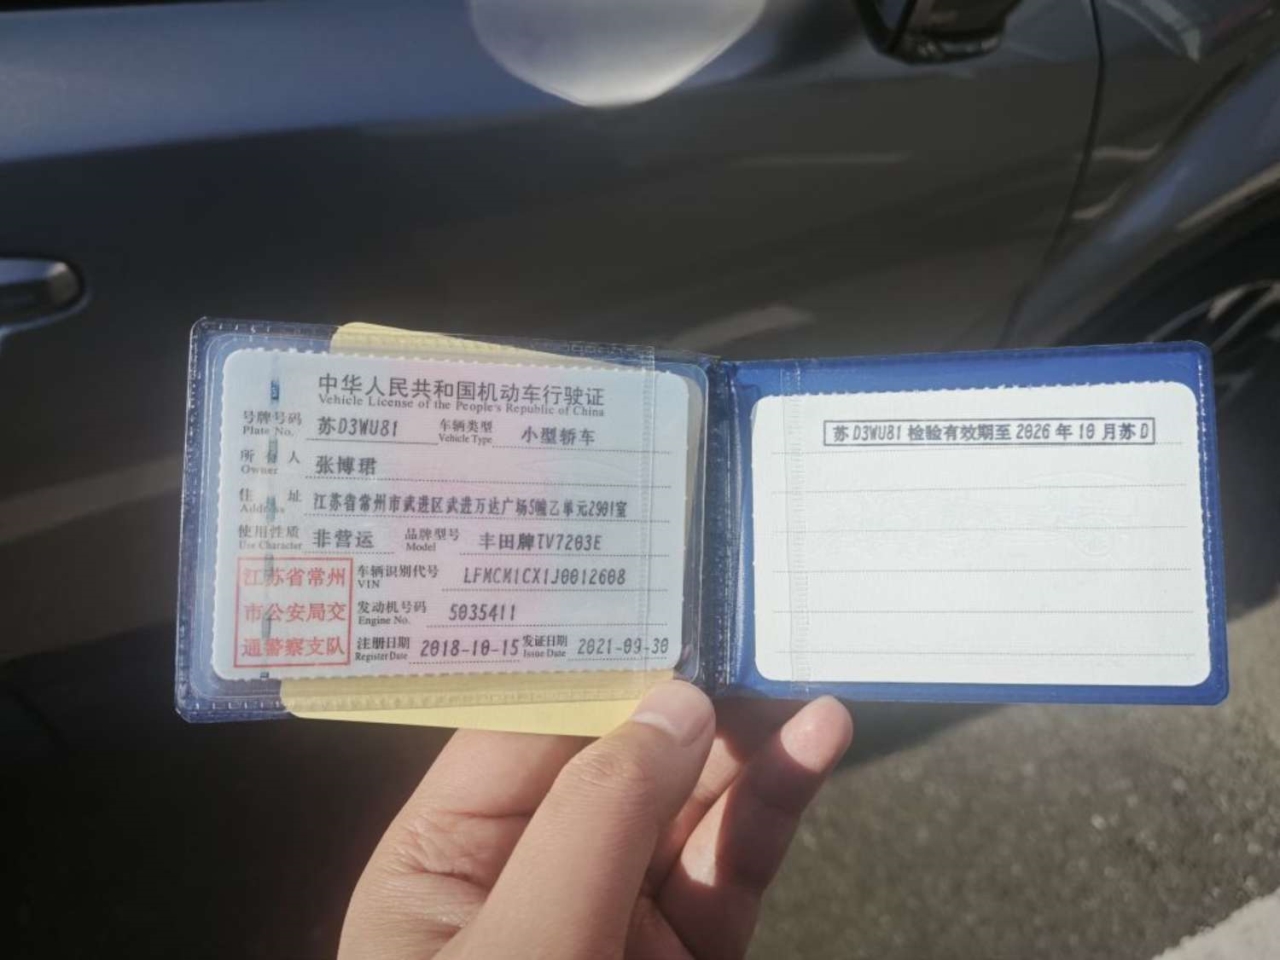 中华人民共和国机动车行驶证
Vehicle License of the People's Republic of China
号牌号码 苏D3WU81 车辆类型 小型轿车
Plate No. Vehicle Type
所有人 张博珺
Owner
住址 江苏省常州市武进区武进万达广场5幢乙单元2901室
Address
使用性质 非营运 品牌型号 丰田牌TV7203E
Use Character Model
江苏省常州
市公安局交
通警察支队
车辆识别代号 LFMCM1CX1J0012608
VIN
发动机号码 5035411
Engine No.
注册日期 2018-10-15 发证日期 2021-09-30
Register Date Issue Date
苏D3WU81 检验有效期至 2026 年 10 月苏 D